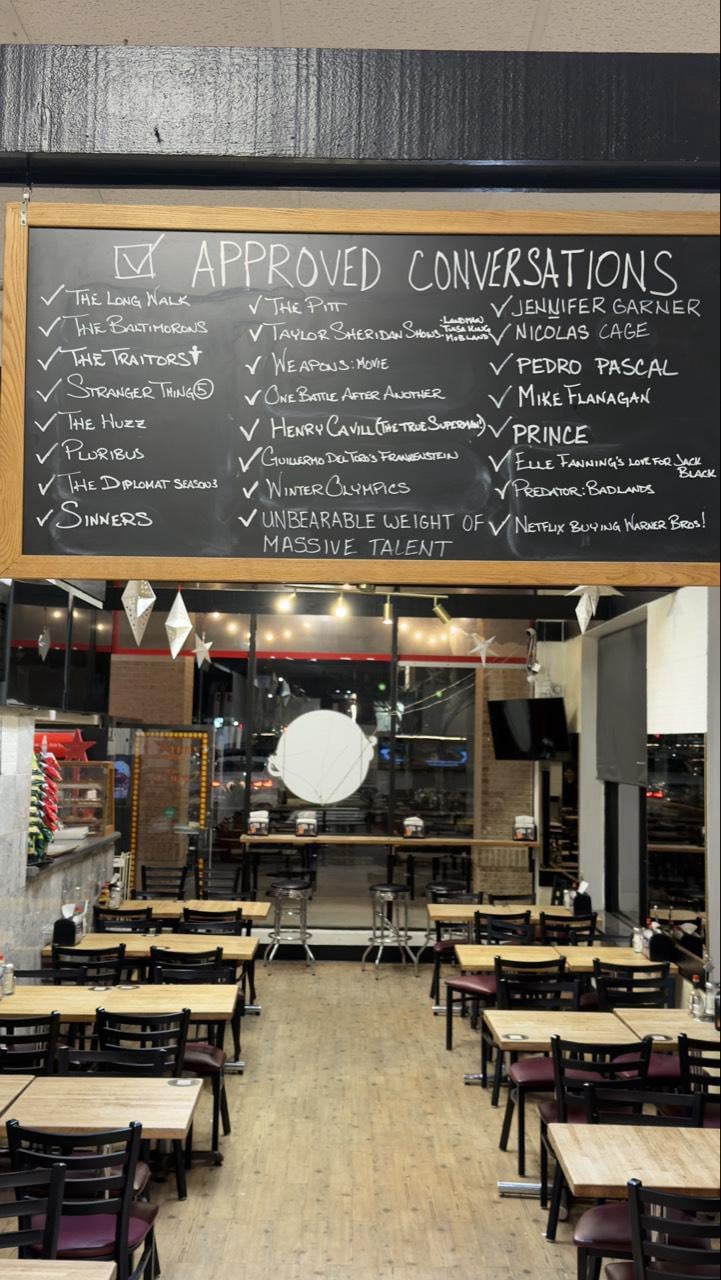 APPROVED CONVERSATIONS
THE LONG WALK
THE BALTIMORONS
THE TRAITORS
STRANGER THING 5
THE HUZZ
PLURIBUS
THE DIPLOMAT SEASON 3
SINNERS
THE PITT
TAYLOR SHERIDAN SHOWS
-LANDMAN
TULSA KING
MOBLAND
WEAPONS: MOVIE
ONE BATTLE AFTER ANOTHER
HENRY CAVILL (THE TRUE SUPERMAN!)
GUILLERMO DEL TORO'S FRANKENSTEIN
WINTER OLYMPICS
UNBEARABLE WEIGHT OF
MASSIVE TALENT
JENNIFER GARNER
NICOLAS CAGE
PEDRO PASCAL
MIKE FLANAGAN
PRINCE
ELLE FANNING'S LOVE FOR JACK
BLACK
PREDATOR: BADLANDS
NETFLIX BUYING WARNER BROS!